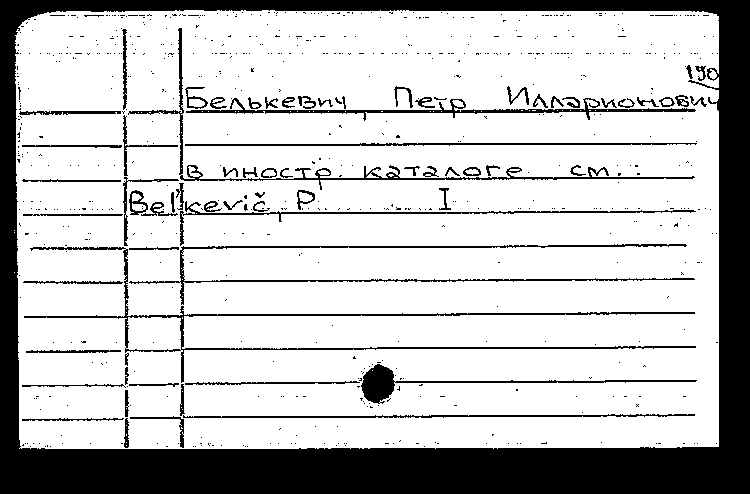 190
Белькевич, Петр Илларионович
в иностр. каталоге см.:
Bel'kevič, P I